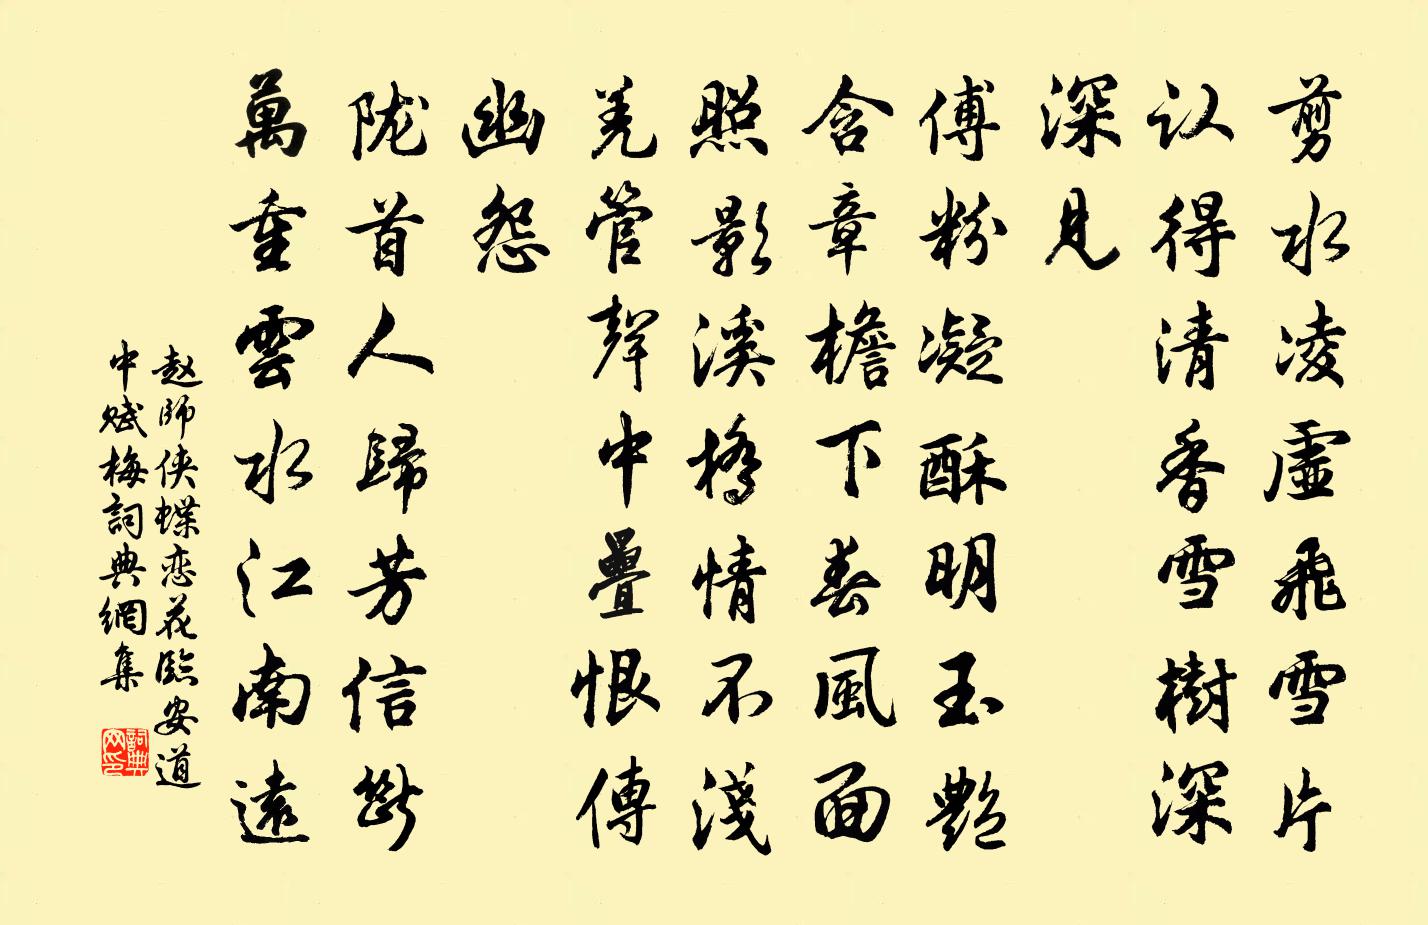 剪水凌虛飛雪片
认得清香雪樹深
深見
傅粉凝酥明玉艷
含章檐下春風面
照影溪橋情不淺
羌管聲中疊恨傳
幽怨
陇首人歸芳信斷
萬重雲水江南遠
赵師侠蝶恋花臨安道
中赋梅詞典網集
詞典
网印